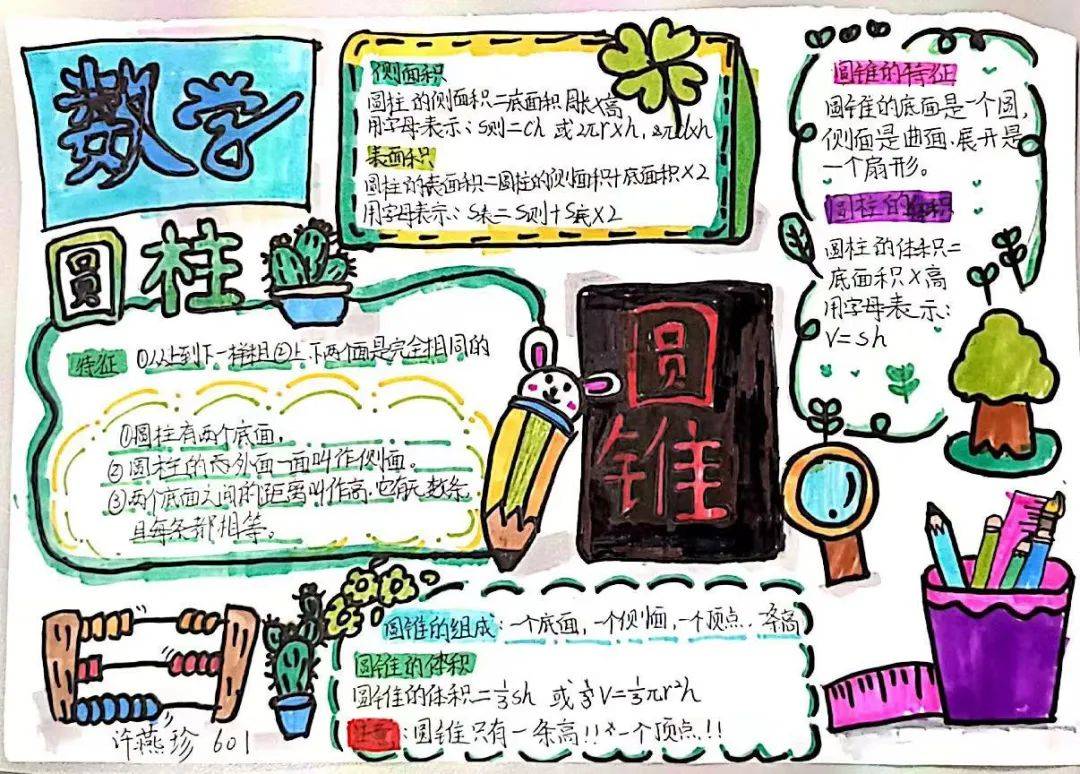 数学
侧面积
圆柱的侧面积=底面积周长×高
用字母表示:S侧=ch 或2πr×h,
表面积
圆柱的表面积=圆柱的侧面积+底面积×2
用字母表示:S表=S侧+S底×2
圆锥的特征
圆锥的底面是一个圆,
侧面是曲面.展开是
一个扇形。
圆柱的体积
圆柱的体积=
底面积×高
用字母表示:
V=sh
圆柱
特征 ①从上到下一样粗②上.下两个面是完全相同的
①圆柱有两个底面.
②圆柱的 外面一面叫作侧面。
③两个底面之间的距离叫作高.也有无数条
且每条都相等。
圆锥
圆锥的组成:一个底面,一个侧面,一个顶点.一条高
圆锥的体积
圆锥的体积=⅓sh 或 V=⅓πr²h
注意:圆锥只有一条高!!一个顶点.!!
许燕珍 601